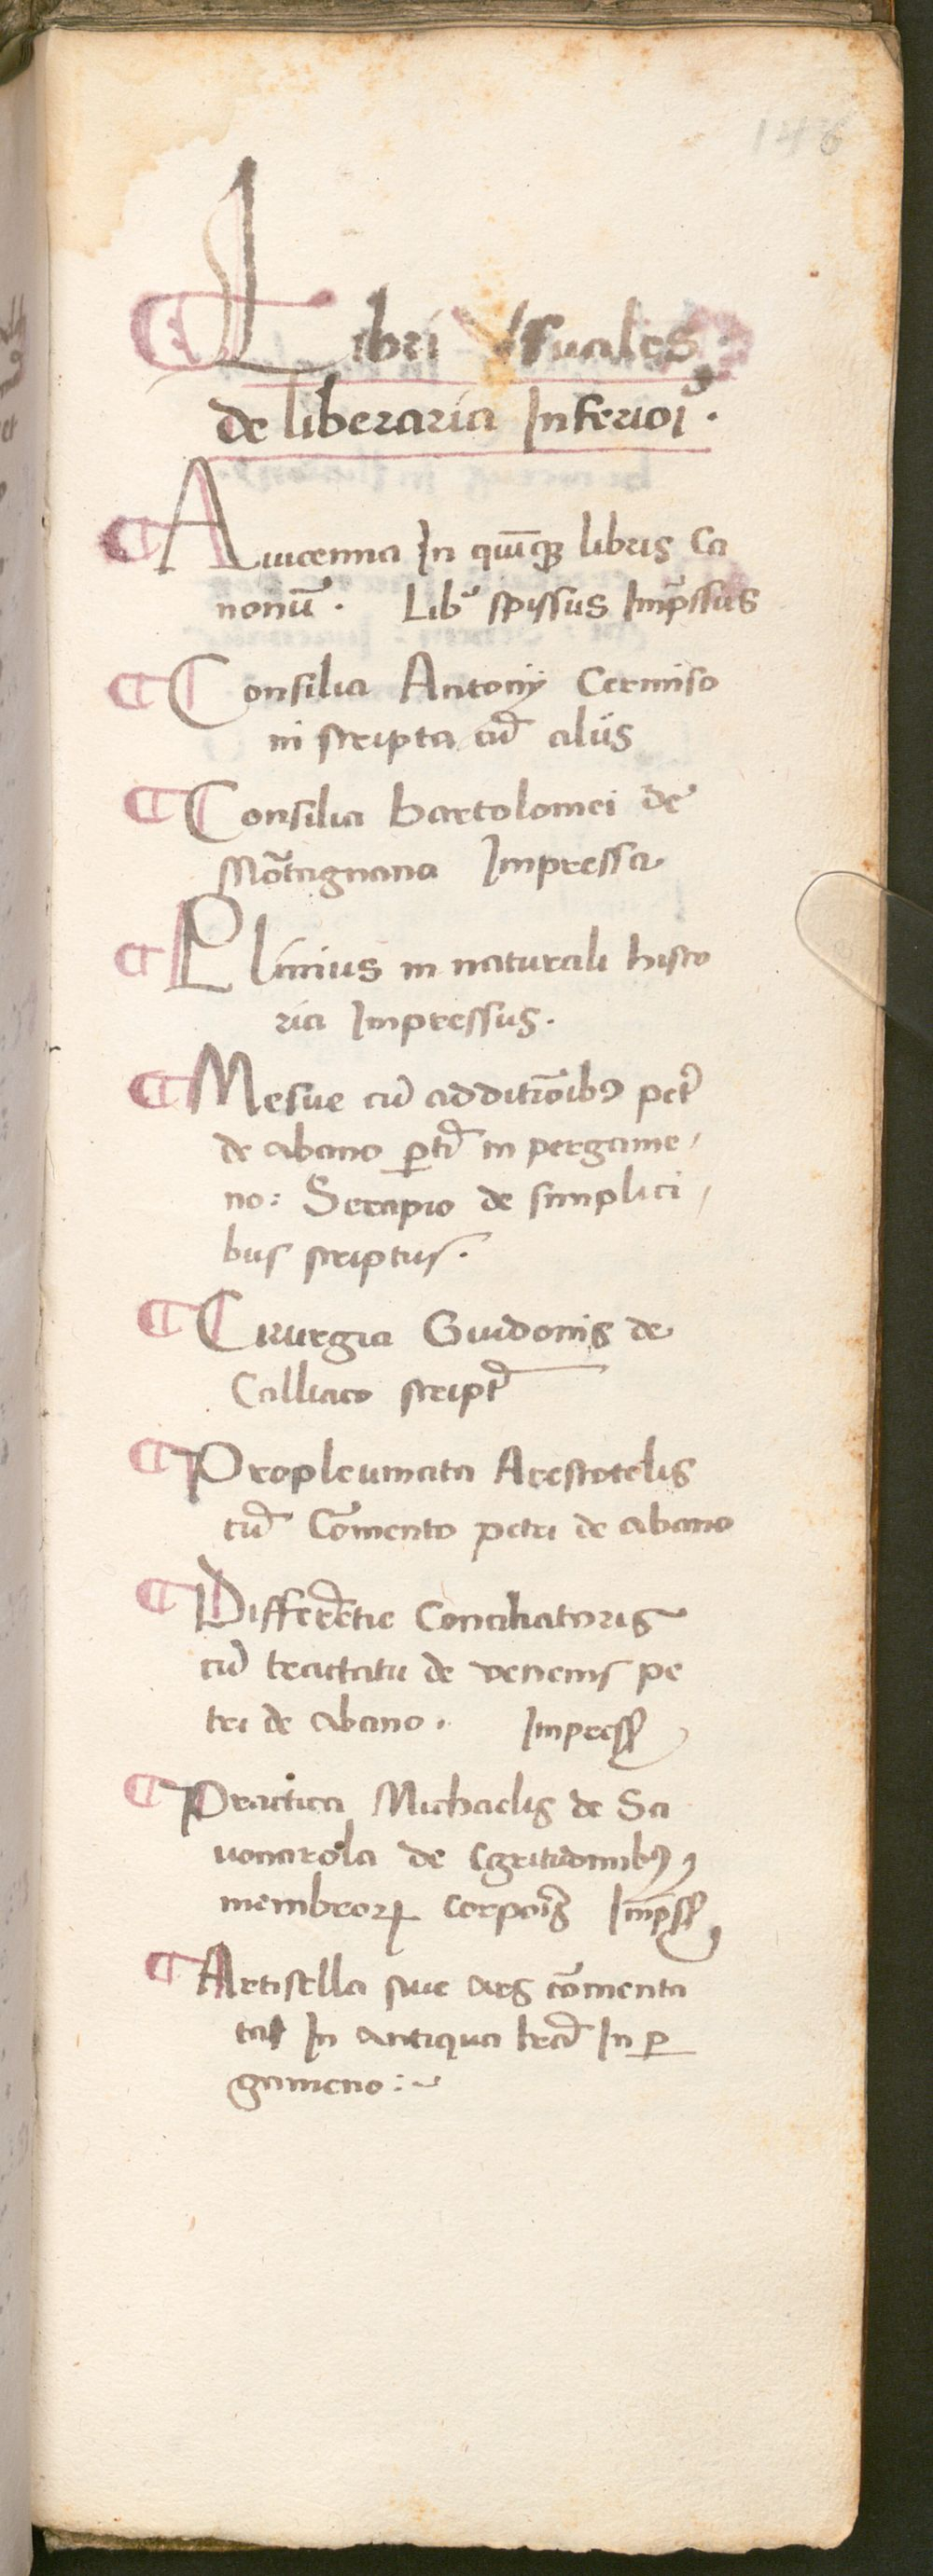 146
Libri Vsuales
de liberaria Inferioꝛi.
¶ Auicenna In quīqꝫ libris Ca
nonū. Libꝰ spissus Imp̄ssus
¶ Consilia Antonij Cermiso
ni scripta cū aliis
¶ Consilia bartolomei de
Mōtagnana Impressa
¶ Plinius in naturali histo
ria Impressus.
¶ Mesue cū additiōibꝰ pet̄
de abano ꝑtī in pergame
no: Serapio de simplici
bus scriptus.
¶ Cirurgia Guidonis de
Calliaco script̄
¶ Propleumata Arestotelis
cū Cōmento petri de abano
¶ Differētie Conciliatoris
cū tractatu de venenis pe
tri de abano. Impress̄
¶ Practica Michaelis de Sa
uonarola de egritudinibꝰ
membroꝝ corpoīs Imp̄ss̄
¶ Artisella siue ars cōmenta
ta In antiqua In ꝑ
gameno:~